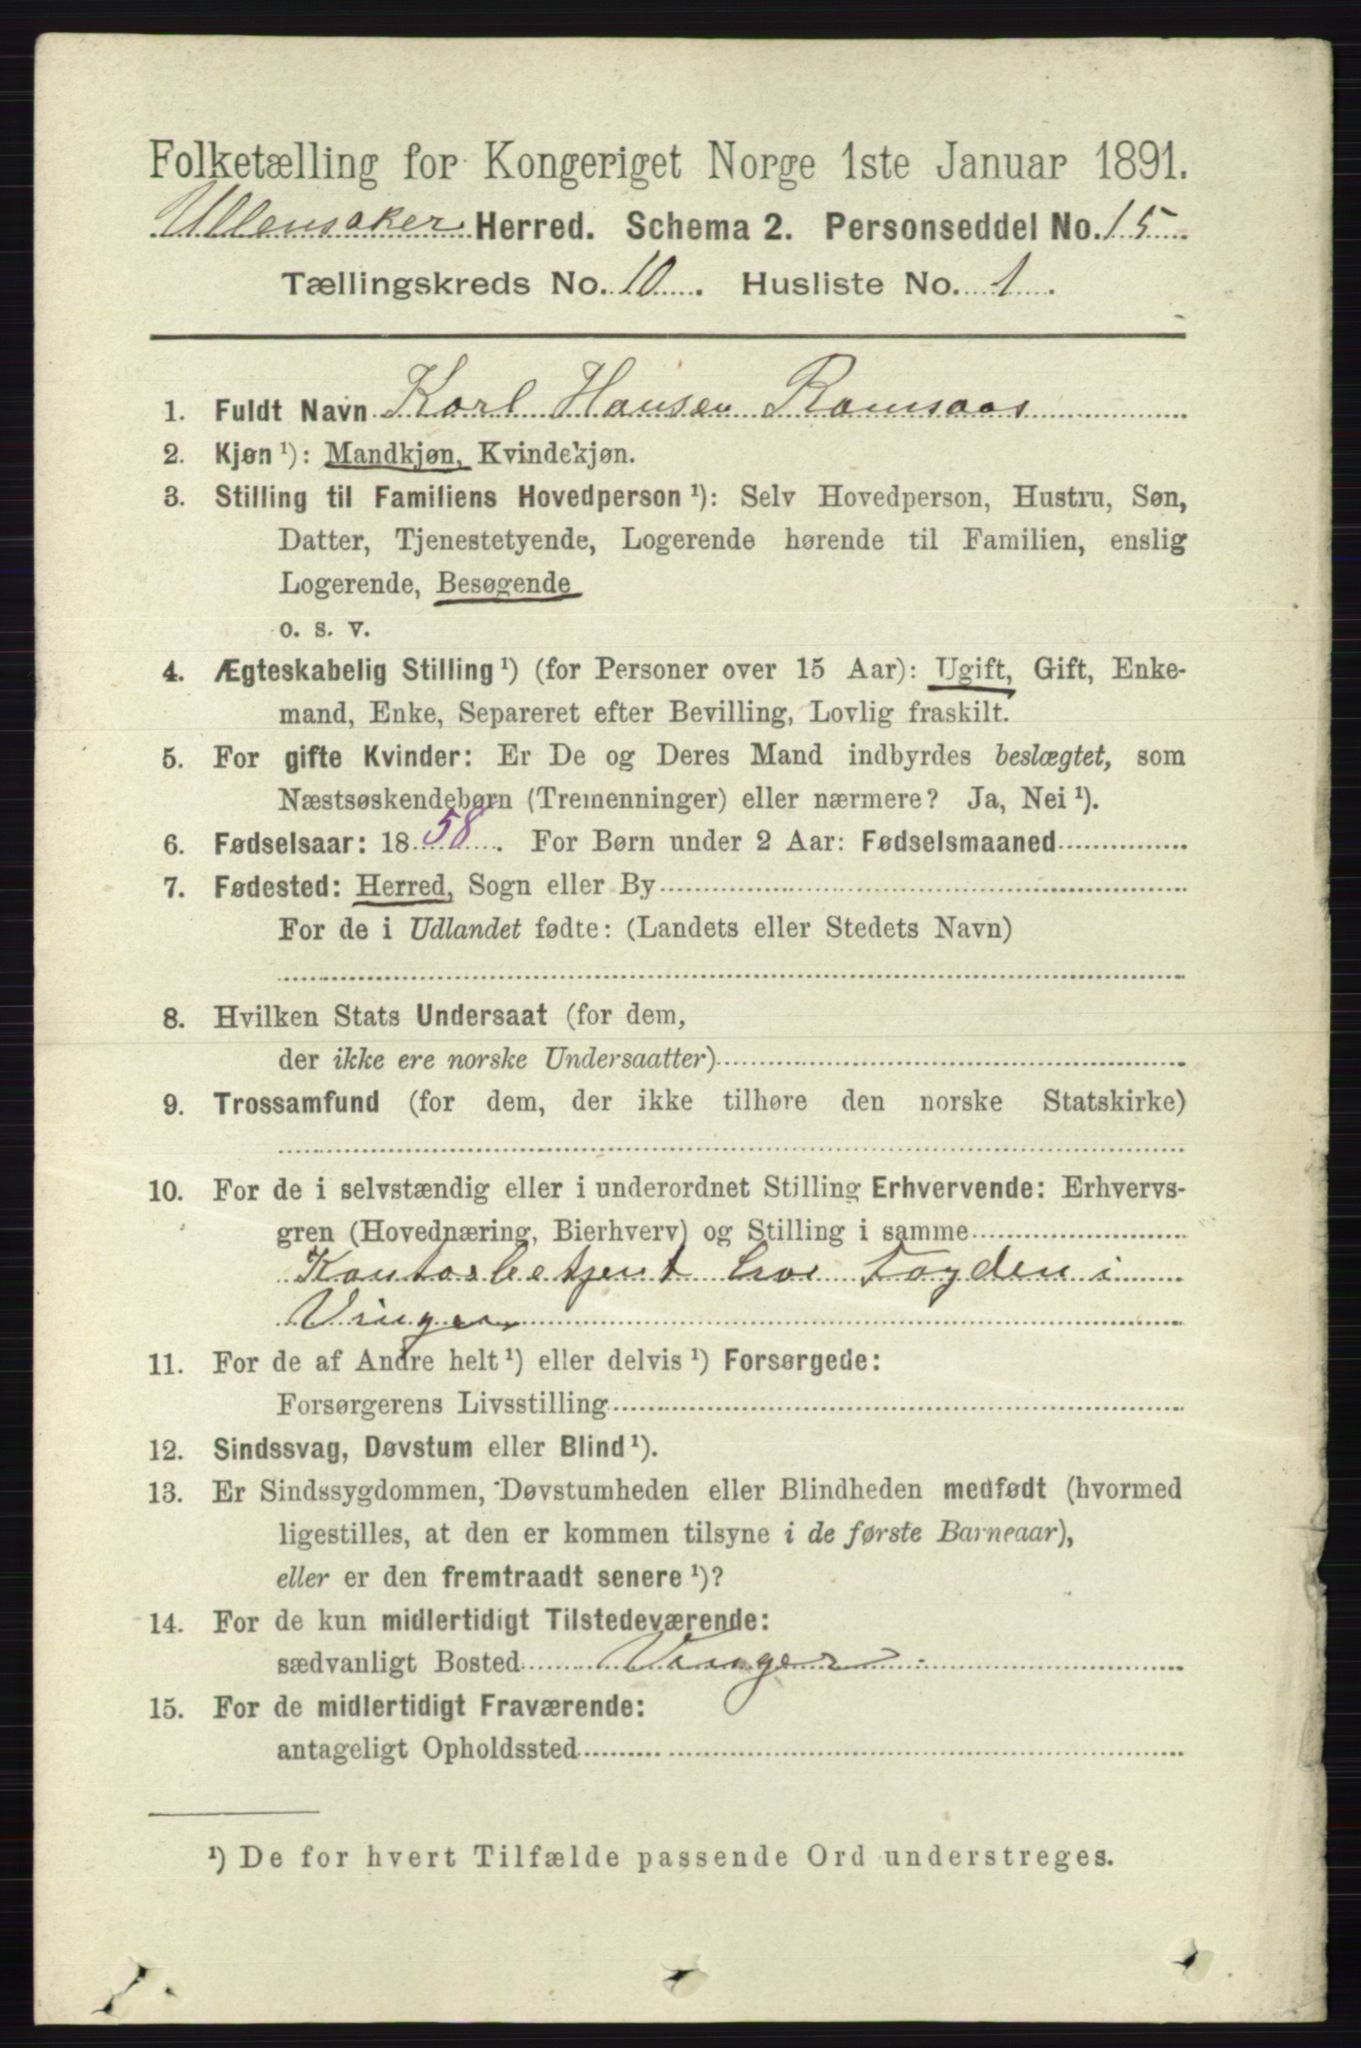 Folketælling for Kongeriget Norge 1ste Januar 1891.
Ullensaker Herred. Schema 2. Personseddel No. 15
Tællingskreds No. 10. Husliste No. 1.
1. Fuldt Navn Karl Hansen Ramsaas
2. Kjøn ¹): Mandkjøn, Kvindekjøn.
3. Stilling til Familiens Hovedperson ¹): Selv Hovedperson, Hustru, Søn,
Datter, Tjenestetyende, Logerende hørende til Familien, enslig
Logerende, Besøgende
o. s. v.
4. Ægteskabelig Stilling ¹) (for Personer over 15 Aar): Ugift, Gift, Enke-
mand, Enke, Separeret efter Bevilling, Lovlig fraskilt.
5. For gifte Kvinder: Er De og Deres Mand indbyrdes beslægtet, som
Næstsøskendebørn (Tremenninger) eller nærmere? Ja, Nei ¹).
6. Fødselsaar: 1858. For Børn under 2 Aar: Fødselsmaaned
7. Fødested: Herred, Sogn eller By
For de i Udlandet fødte: (Landets eller Stedets Navn)
8. Hvilken Stats Undersaat (for dem,
der ikke ere norske Undersaatter)
9. Trossamfund (for dem, der ikke tilhøre den norske Statskirke)
10. For de i selvstændig eller i underordnet Stilling Erhvervende: Erhvervs-
gren (Hovednæring, Bierhverv) og Stilling i samme
Kontorbetjent hos Fogden i
Vinger
11. For de af Andre helt ¹) eller delvis ¹) Forsørgede:
Forsørgerens Livsstilling
12. Sindssvag, Døvstum eller Blind ¹).
13. Er Sindssygdommen, Døvstumheden eller Blindheden medfødt (hvormed
ligestilles, at den er kommen tilsyne i de første Barneaar),
eller er den fremtraadt senere ¹)?
14. For de kun midlertidigt Tilstedeværende:
sædvanligt Bosted Vinger
15. For de midlertidigt Fraværende:
antageligt Opholdssted
¹) De for hvert Tilfælde passende Ord understreges.